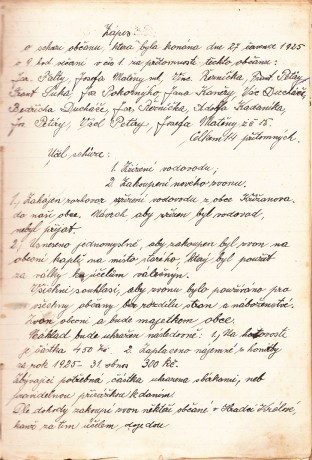 Zápis
o schůzi občanů, která byla konána dne 27 července 1925
o 9 hod večer v čís 1 za přítomnosti těchto občanů:
Jos. Matěny ml, Vinc. Řezníčka, Frant Petřey
Frant Jos Pokorného, Jana Vác Ducháče,
Bedřicha Ducháče, Jos. Řezníčka, Adolfa Kadaníka,
Jos Petřey, Václ Petřey, Josefa Matěny z č 15.
Celkem 14 přítomných.
Účel schůze:
1. Zřízení vodovodu;
2. Zakoupení nového zvonu.
1, Zahájen rozhovor zřízení vodovodu z obce Křižanova
do naší obce. Návrch aby zřízen byl vodovod,
nebyl přijat.
2, Usneseno jednomyslně, aby zakoupen byl zvon na
obecní kapli na místo starého, který byl použit
za války k účelům válečným.
Všichni souhlasí, aby zvonu bylo používáno pro
všechny občany bez rozdílu stran a náboženství.
Zvon obecní a bude majetkem obce.
Náklad bude uhražen následovně: 1, Na hotovosti
je částka 450 Kč 2. Zaplaceno nájemné z honitby
za rok 1925-31 obnos 300 Kč.
Zbývající potřebná částka uhrazena sbírkami, neb
přirážkou k daním
Dle dohody zakoupí zvon někteří občané v Hradci Králové,
kamž za tím účelem dojedou